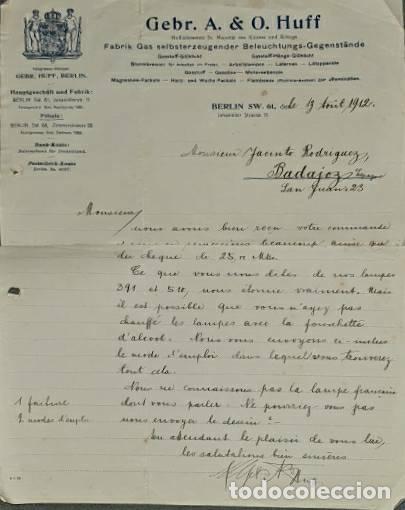 Gebr. A. & O. Huff
Hoflieferanten Sr. Majestät des Kaisers und Königs
Fabrik Gas selbsterzeugender Beleuchtungs-Gegenstände
Gasstoff-Glühlicht Gasstoff-Hänge-Glühlicht
Sturmbrenner für Arbeiten im Freien Arbeitslampen Laternen Lötapparate
Gasstoff Gasoline Motorenbenzin
Magnesium-Fackeln Harz- und Wachs-Fackeln
GEBR. HUFF, BERLIN.
Hauptgeschäft und Fabrik:
BERLIN SW. 61, Johanniterstr. 11
Filiale:
BERLIN SW. 68, Zimmerstrasse
Bank-Konto:
Postscheck-Konto
BERLIN SW. 61, den 13 Août 1912.
Johanniter Strasse 11
Monsieur Jacinto Rodriguez,
Badajoz
San Juan 23
Monsieur,
nous avons bien reçu votre commande
beaucoup ainsi que
du cheque de 25 Mks.
Ce que vous nous dites de nos lampes
391 et 510, nous étonne vraiment. Mais
il est possible que vous n'ayez pas
chauffé les lampes avec la fourchette
d'alcool. Nous vous envoyons ci-inclus
le mode d'emploi dans lequel vous trouverez
tout cela.
Nous ne connaissons pas la lampe française
dont vous parlez. Ne pourriez vous pas
nous envoyer le dessin?
En attendant le plaisir de vous lire,
les salutations bien sincères
1 facture
2 modes d'emploi
todocoleccion.net